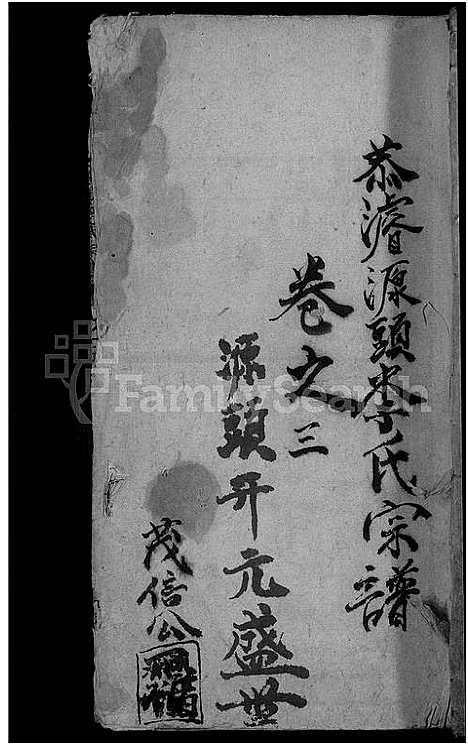 恭濬源頭李氏宗譜
卷之三
源頭开元盛世
茂信公
FamilySearch